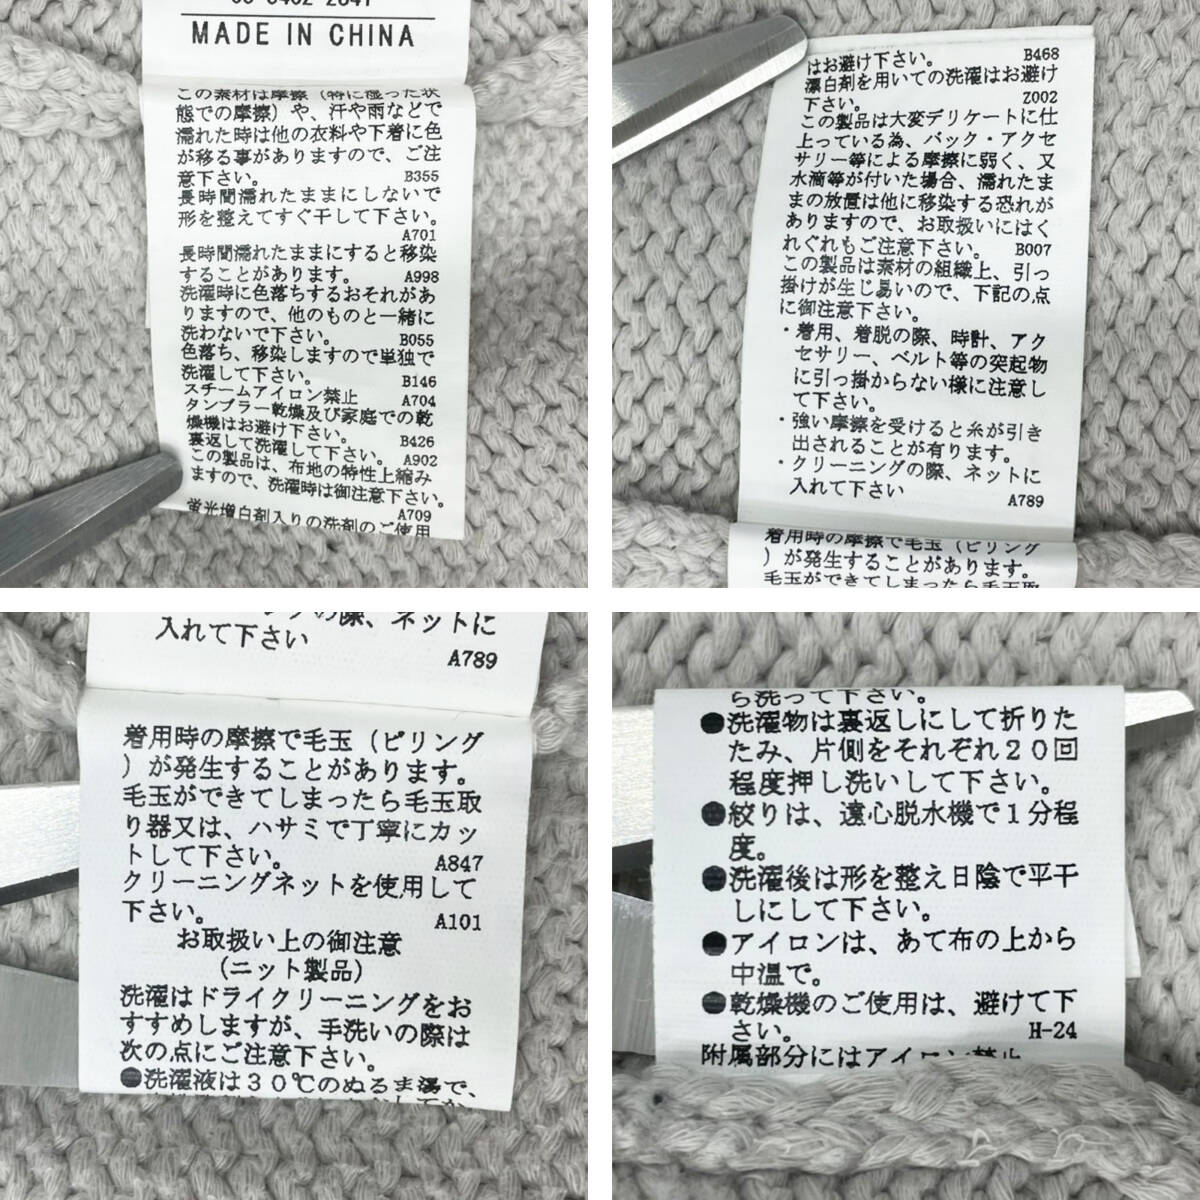 MADE IN CHINA
この素材は摩擦（特に湿った状
態での摩擦）や、汗や雨などで
濡れた時は他の衣料や下着に色
が移る事がありますので、ご注
意下さい。 B355
長時間濡れたままにしないで
形を整えてすぐ干して下さい。
A701
長時間濡れたままにすると移染
することがあります。 A998
洗濯時に色落ちするおそれがあ
りますので、他のものと一緒に
洗わないで下さい。 B055
色落ち、移染しますので単独で
洗濯して下さい。 B146
スチームアイロン禁止 A704
タンブラー乾燥及び家庭での乾
燥機はお避け下さい。 B426
裏返して洗濯して下さい。 A902
この製品は、布地の特性上縮み
ますので、洗濯時は御注意下さい。
A709
蛍光増白剤入りの洗剤のご使用
はお避け下さい。 B468
漂白剤を用いての洗濯はお避け
下さい。 Z002
この製品は大変デリケートに仕
上っている為、バック・アクセ
サリー等による摩擦に弱く、又
水滴等が付いた場合、濡れたま
まの放置は他に移染する恐れが
ありますので、お取扱いにはく
れぐれもご注意下さい。 B007
この製品は素材の組織上、引っ
掛けが生じ易いので、下記の点
に御注意下さい。
・着用、着脱の際、時計、アク
セサリー、ベルト等の突起物
に引っ掛からない様に注意し
て下さい。
・強い摩擦を受けると糸が引き
出されることが有ります。
・クリーニングの際、ネットに
入れて下さい A789
着用時の摩擦で毛玉（ピリング
）が発生することがあります。
毛玉ができてしまったら毛玉取
の際、ネットに
入れて下さい
A789
着用時の摩擦で毛玉（ピリング
）が発生することがあります。
毛玉ができてしまったら毛玉取
り器又は、ハサミで丁寧にカッ
トして下さい。 A847
クリーニングネットを使用して
下さい。 A101
お取扱い上の御注意
(ニット製品)
洗濯はドライクリーニングをお
すすめしますが、手洗いの際は
次の点にご注意下さい。
●洗濯液は３０℃のぬるま湯で、
ら洗って下さい。
●洗濯物は裏返しにして折りた
たみ、片側をそれぞれ２０回
程度押し洗いして下さい。
●絞りは、遠心脱水機で１分程
度。
●洗濯後は形を整え日陰で平干
しにして下さい。
●アイロンは、あて布の上から
中温で。
●乾燥機のご使用は、避けて下
さい。 H-24
附属部分にはアイロン禁止